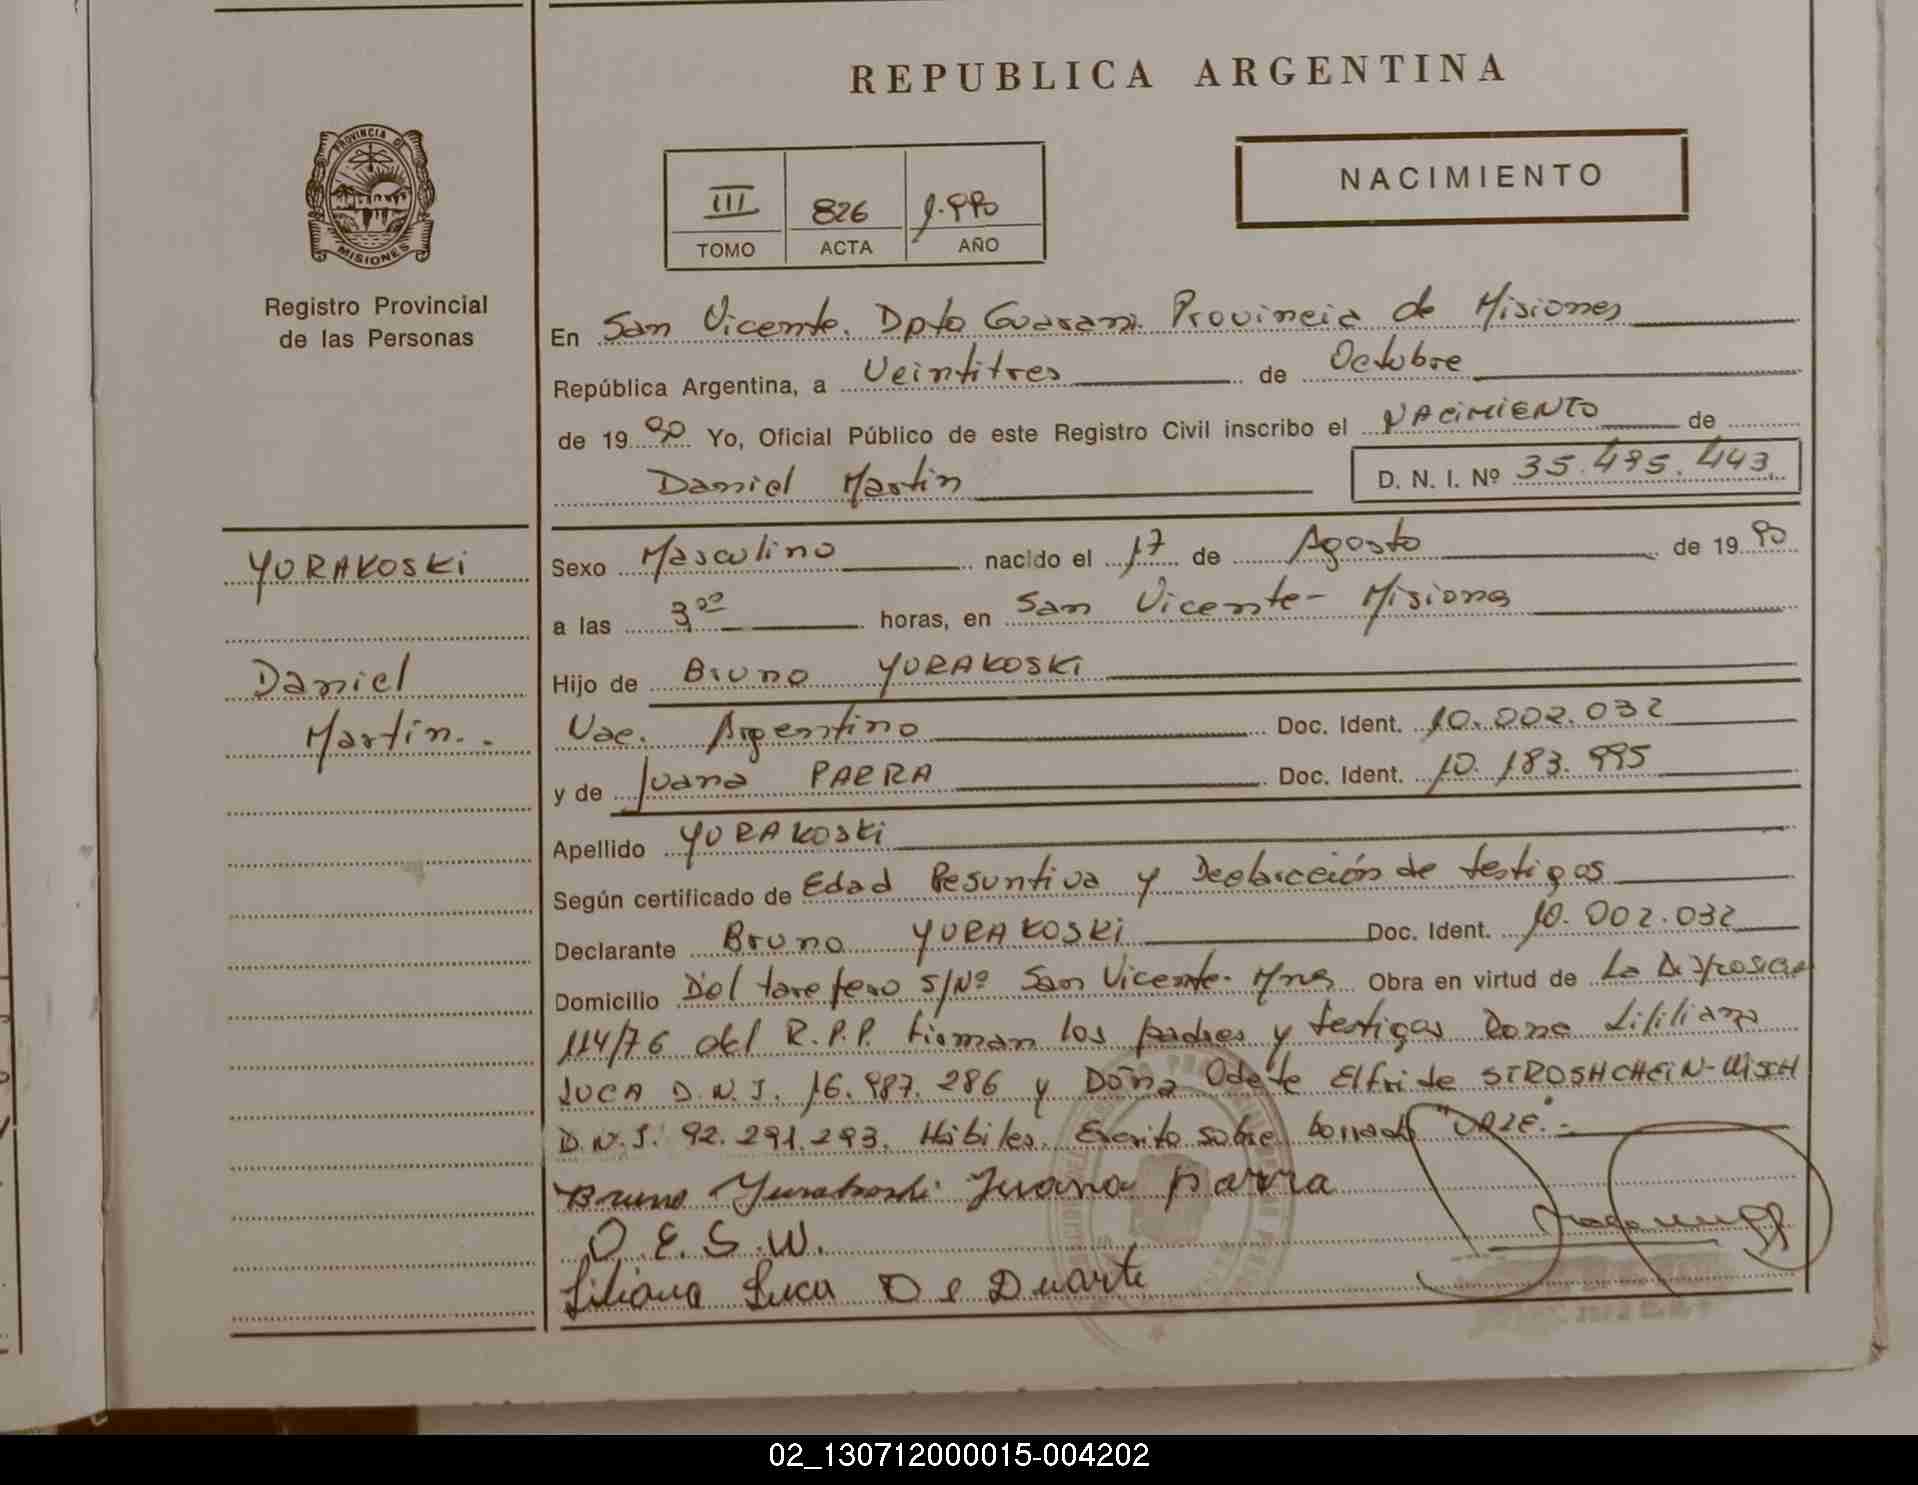 REPUBLICA ARGENTINA
PROVINCIA DE
MISIONES
Registro Provincial
de las Personas
III 826 1.990
TOMO ACTA AÑO
NACIMIENTO
En San Vicente. Dpto Guarani. Provincia de Misiones
República Argentina, a Veintitres de Octubre
de 1990 Yo, Oficial Público de este Registro Civil inscribo el NACIMIENTO de
Daniel Martin D. N. I. Nº 35.495.443
YURAKOSKi
Daniel
Martin..
Sexo Masculino nacido el 17 de Agosto de 1990
a las 3,00 horas, en San Vicente - Misiones
Hijo de Bruno YURAKOSKi
Nac. Argentino Doc. Ident. 10.002.032
y de Juana PARRA Doc. Ident. 10.183.995
Apellido YURAKOSKi
Según certificado de Edad Pesuntiva y Declarcción de testigos
Declarante Bruno YURAKOSKi Doc. Ident. 10.002.032
Domicilio D'el tarefero S/Nº San Vicente - Mnes Obra en virtud de La
114/76 del R.P.P. firman los padres y testigos Dona Lililiana
LUCA D.N.I. 16.987.286 y Doña Odete Elfride STROSHCHEiN-WiSCH
D.N.I. 92.291.293. Hábiles. Escrito sobre borrado
Bruno Yurakoski Juana parra
O.E.S.W.
Liliana Luca De Duarte
02_130712000015-004202